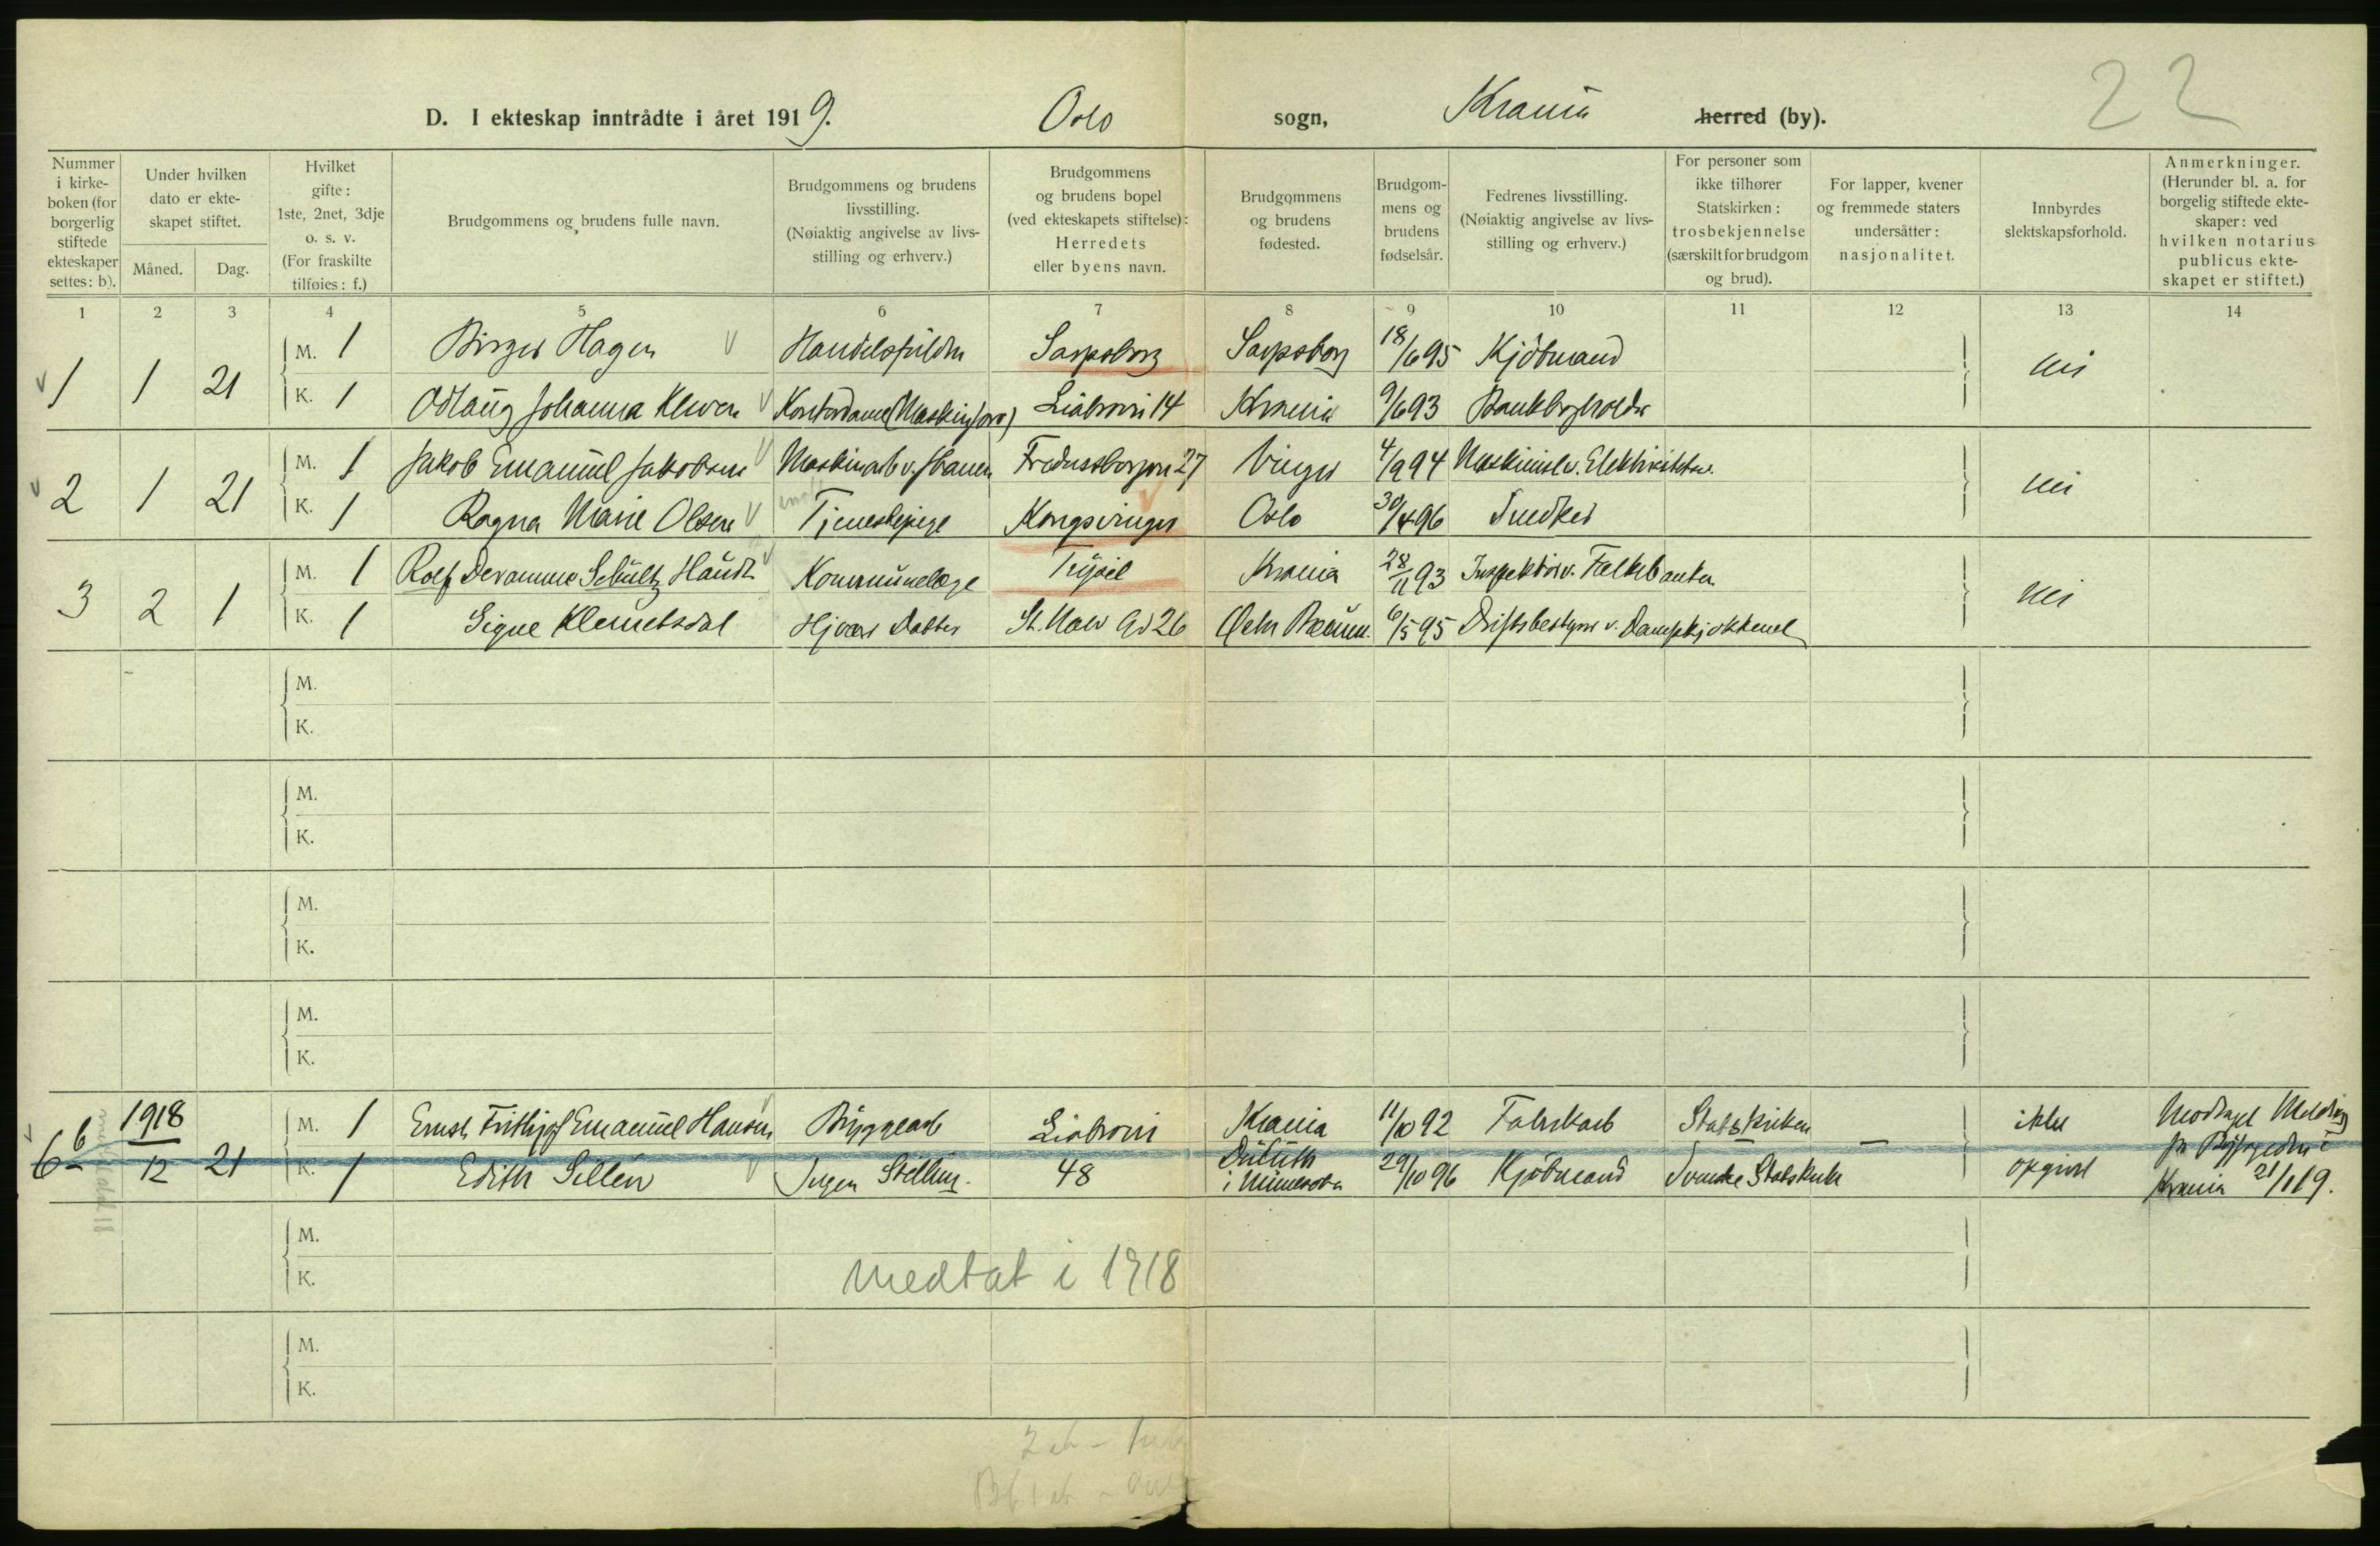 22
D. I ekteskap inntrådte i året 1919. Oslo sogn, Krania herred (by).
Nummer i kirke-boken (for borgerlig stiftede ekteskaper settes: b).
Under hvilken dato er ekte-skapet stiftet.
Måned. Dag.
Hvilket gifte: 1ste, 2net, 3dje o. s. v. (For fraskilte tilføies: f.)
Brudgommens og brudens fulle navn.
Brudgommens og brudens livsstilling. (Nøiaktig angivelse av livs-stilling og erhverv.)
Brudgommens og brudens bopel (ved ekteskapets stiftelse): Herredets eller byens navn.
Brudgommens og brudens fødested.
Brudgom-mens og brudens fødselsår.
Fedrenes livsstilling. (Nøiaktig angivelse av livs-stilling og erhverv.)
For personer som ikke tilhører Statskirken: trosbekjennelse (særskilt for brudgom og brud).
For lapper, kvener og fremmede staters undersåtter: nasjonalitet.
Innbyrdes slektskapsforhold.
Anmerkninger. (Herunder bl. a. for borgelig stiftede ekte-skaper: ved hvilken notarius publicus ekte-skapet er stiftet.)
1 2 3 4 5 6 7 8 9 10 11 12 13 14
1 1 21 M. 1 Birger Hagen Sarpsborg Sarpsborg 18/6 95 Kjøbmand nei
K. 1 Odlaug Johanna Kontordame Liabrovn 14 Krania 9/6 93 Bankbogholder
2 1 21 M. 1 Jakob Emanuel Jakobsen 27 Vinger 4/9 94 nei
K. 1 Ragna Marie Olsen Tjenestepige Kongsvinger Oslo 30/4 96 Snedker
3 2 1 M. 1 Rolf Schultz Kommunelæge Trysil Krania 28/11 93 nei
K. 1 Signe Klemetsdal Hjemv Datter St. Halv Gd 26 6/5 95 Driftsbestyrer v. Dampkjøkkenet
M.
K.
M.
K.
M.
K.
M.
K.
6 b 1918 12 21 M. 1 Ernst Frithjof Emanuel Hansen Byggearb Liabrovn Krania 11/10 92 Fabrikarb Statskirken ikke Modtaget Melding
K. 1 Edith Sillén Ingen Stilling. 48 Duluth i Minnesota 29/10 96 Kjøbmand Svenske Statskirke opgivet Krania 21/1 19.
M.
K.
medtat i 1918
M.
K.